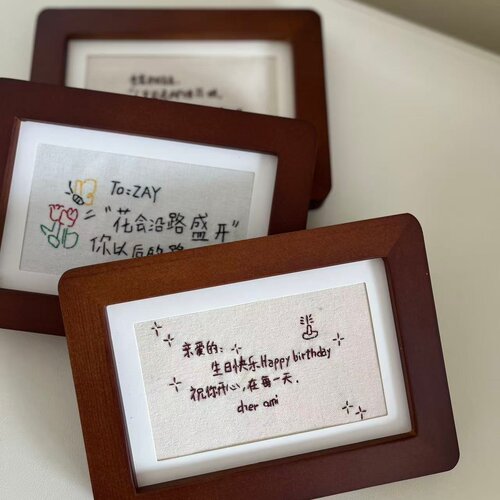 To:ZAY
"花会沿路盛开"
你以后的路
亲爱的:
生日快乐Happy birthday
祝你开心,在每一天.
cher ami